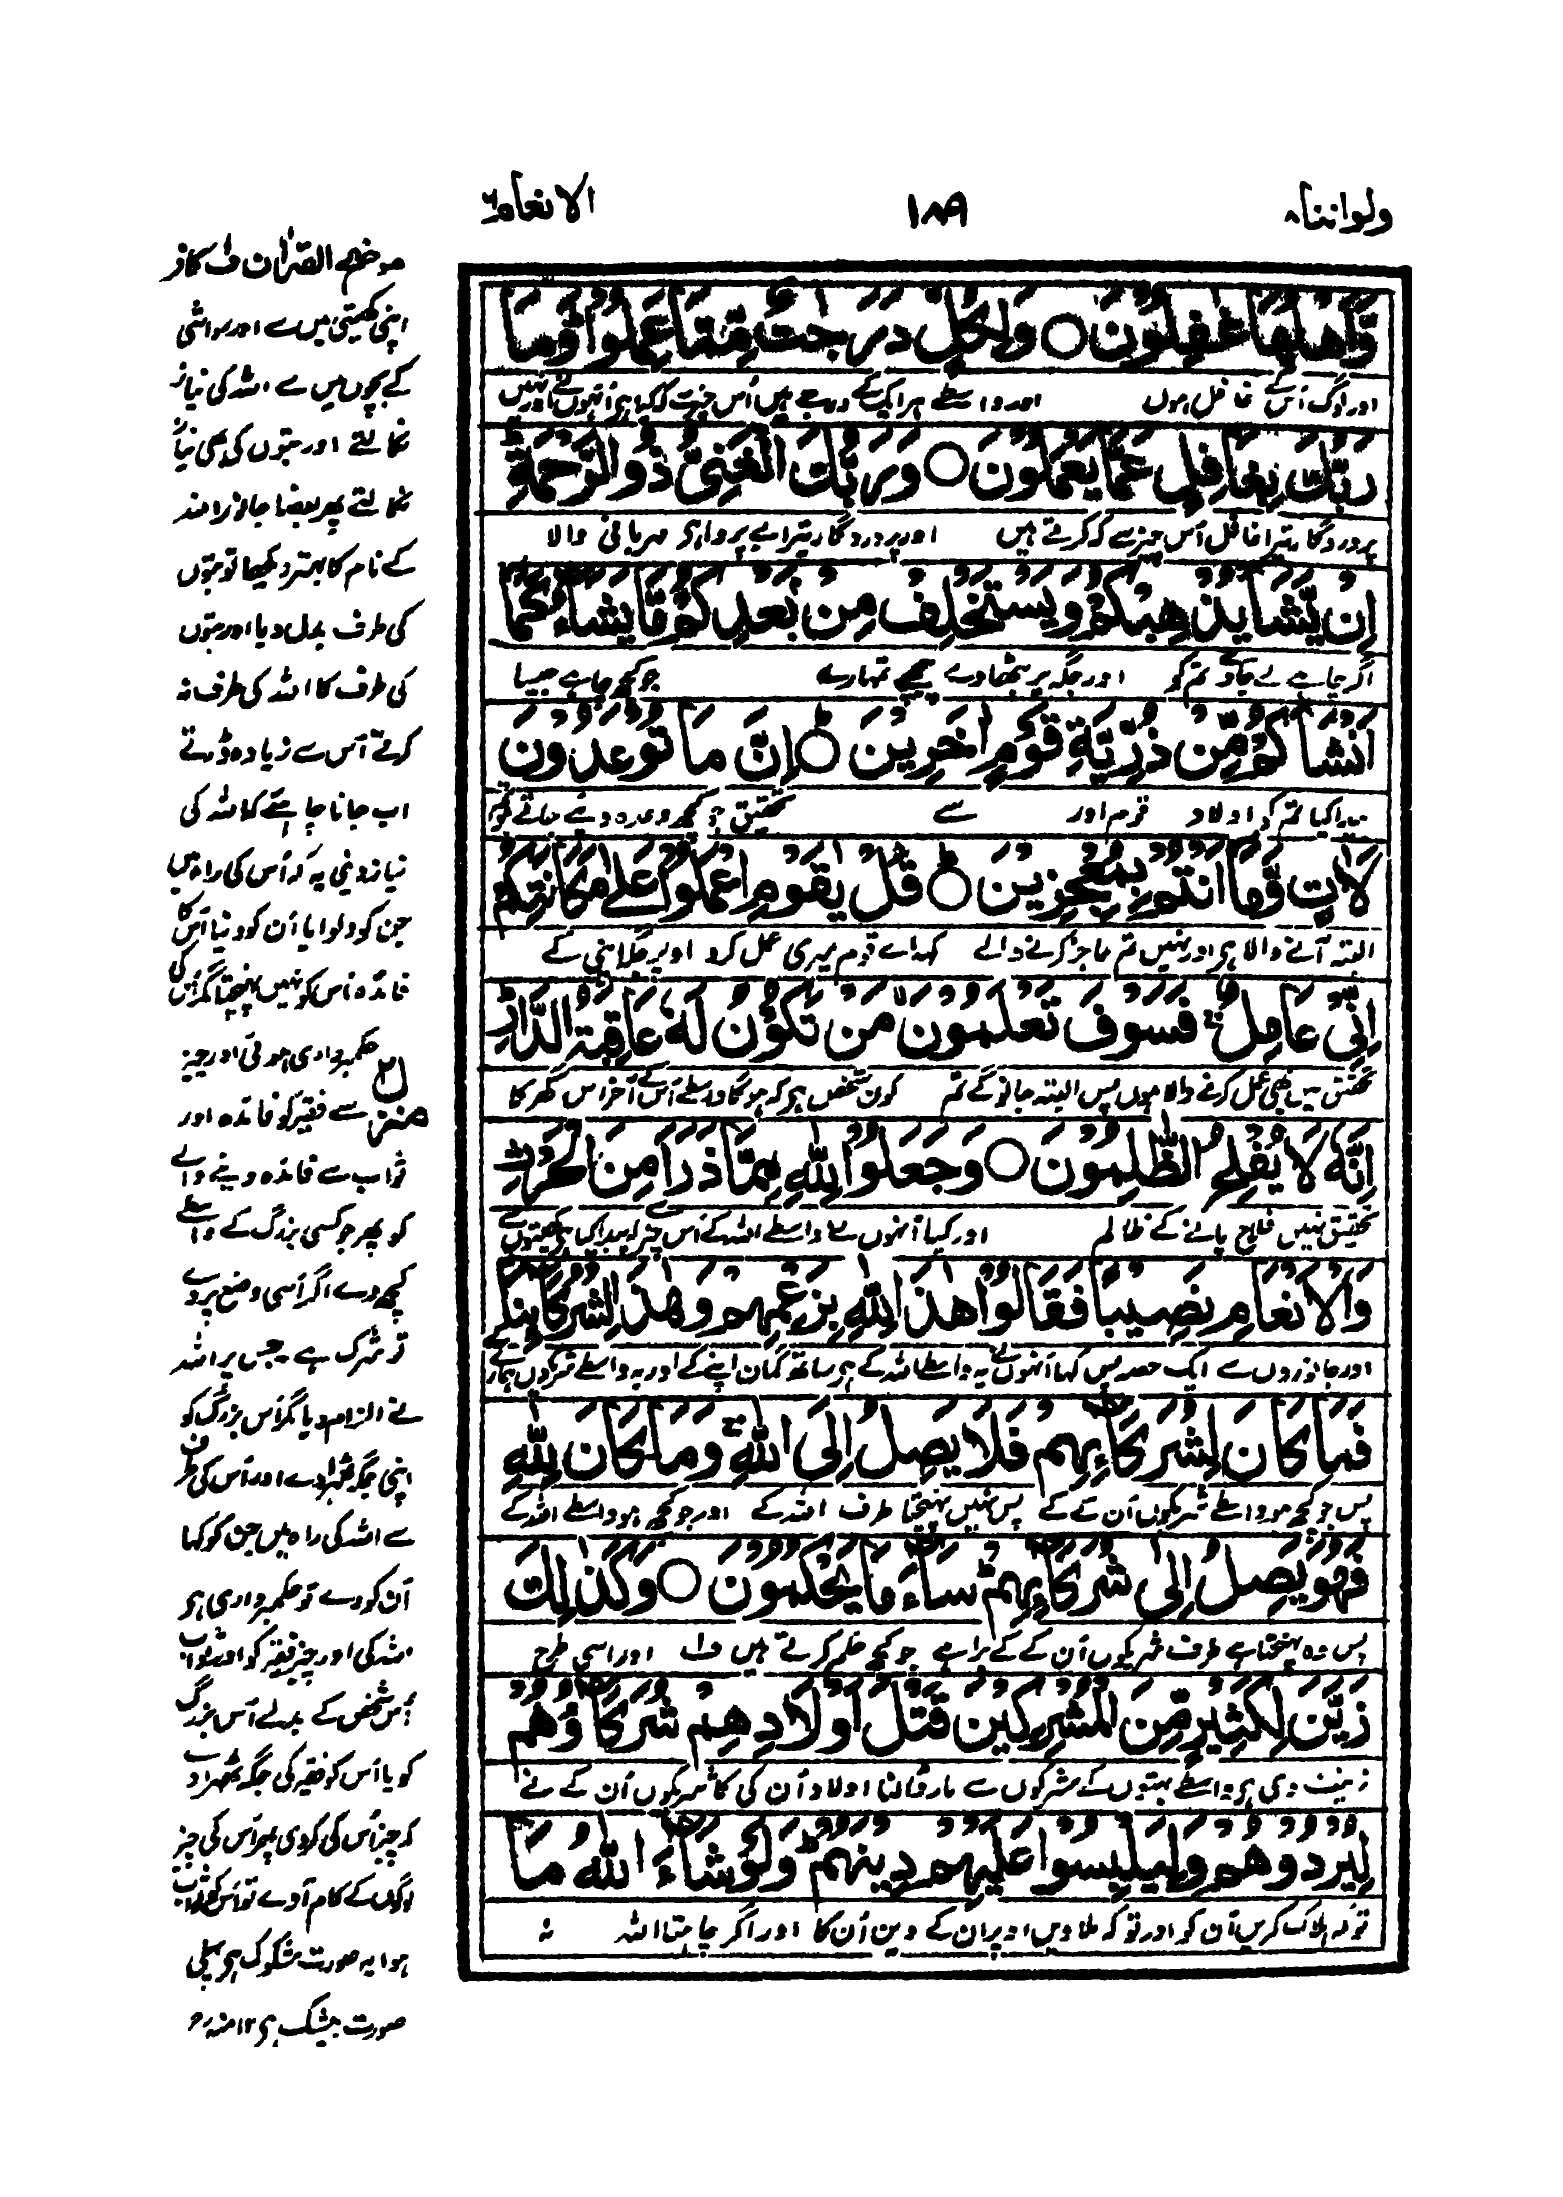 ولواننا ٨
١٨٩
الانعام ٦
وَّاَهْلُهَا غٰفِلُوْنَ ○ وَلِكُلٍّ دَرَجٰتٌ مِّمَّا عَمِلُوْا وَمَا
اور لوگ اُس کے غافل ہوں اور واسطے ہر ایک کے درجے ہیں اُس چیز سے کہ کیا ہی اُنہوں نے اور نہیں
رَبُّكَ بِغَافِلٍ عَمَّا يَعْمَلُوْنَ ○ وَرَبُّكَ الْغَنِيُّ ذُو الرَّحْمَةِ
پروردگار تیرا غافل اُس چیز سے کہ کرتے ہیں اور پروردگار تیرا بے پرواہ ہی مہربانی والا
اِنْ يَّشَاْ يُذْهِبْكُمْ وَيَسْتَخْلِفْ مِنْۢ بَعْدِكُمْ مَّا يَشَآءُ كَمَا
اگر چاہے لے جاوے تم کو اور جگہ پر بٹھادے پیچھے تمہارے جو کچھ چاہے جیسا
اَنْشَاَكُمْ مِّنْ ذُرِّيَّةِ قَوْمٍ اٰخَرِيْنَ ○ اِنَّ مَا تُوْعَدُوْنَ
پیدا کیا تم کو اولاد قوم اور سے تحقیق جو کچھ وعدہ دیئے جاتے ہو تم
لَاٰتٍ وَّمَآ اَنْتُمْ بِمُعْجِزِيْنَ ○ قُلْ يٰقَوْمِ اعْمَلُوْا عَلٰى مَكَانَتِكُمْ
البتہ آنے والا ہی اور نہیں تم عاجز کرنے والے کہہ اے قوم میری عمل کرو اوپر جگہ اپنی کے
اِنِّيْ عَامِلٌ فَسَوْفَ تَعْلَمُوْنَ مَنْ تَكُوْنُ لَهٗ عَاقِبَةُ الدَّارِ
تحقیق میں بھی عمل کرنے والا ہوں پس البتہ جانو گے تم کون شخص ہی کہ ہوگا واسطے اُس کے آخر اس گھر کا
اِنَّهٗ لَا يُفْلِحُ الظّٰلِمُوْنَ ○ وَجَعَلُوْا لِلّٰهِ مِمَّا ذَرَاَ مِنَ الْحَرْثِ
تحقیق نہیں فلاح پانے کے ظالم اور کیا اُنہوں نے واسطے اللہ کے اُس چیز سے کہ پیدا کیا ہی کھیتوں سے
وَالْاَنْعَامِ نَصِيْبًا فَقَالُوْا هٰذَا لِلّٰهِ بِزَعْمِهِمْ وَهٰذَا لِشُرَكَآئِنَا
اور جانوروں سے ایک حصہ پس کہا اُنہوں نے یہ واسطے اللہ کے ہی ساتھ گمان اپنے کے اور یہ واسطے شریکوں ہمارے کے
فَمَا كَانَ لِشُرَكَآئِهِمْ فَلَا يَصِلُ اِلَى اللّٰهِ وَمَا كَانَ لِلّٰهِ
پس جو کچھ ہو واسطے شریکوں اُن کے کے پس نہیں پہنچتا طرف اللہ کے اور جو کچھ ہو واسطے اللہ کے
فَهُوَ يَصِلُ اِلٰى شُرَكَآئِهِمْ سَآءَ مَا يَحْكُمُوْنَ ○ وَكَذٰلِكَ
پس وہ پہنچتا ہے طرف شریکوں اُن کے کے برا ہے جو کچھ حکم کرتے ہیں ف۱ اور اسی طرح
زَيَّنَ لِكَثِيْرٍ مِّنَ الْمُشْرِكِيْنَ قَتْلَ اَوْلَادِهِمْ شُرَكَآؤُهُمْ
زینت دی ہی واسطے بہتوں کے مشرکوں سے مار ڈالنا اولاد اُن کی کا شریکوں اُن کے نے
لِيُرْدُوْهُمْ وَلِيَلْبِسُوْا عَلَيْهِمْ دِيْنَهُمْ وَلَوْ شَآءَ اللّٰهُ مَا
تو کہ ہلاک کریں اُن کو اور تو کہ ملاویں اوپر ان کے دین اُن کا اور اگر چاہتا اللہ نہ
موضح القرآن ف۱ کافر
اپنی کھیتی میں سے اور مواشی
کے بچوں میں سے اللہ کی نیاز
نکالتے اور بتوں کی بھی نیاز
نکالتے پھر بعضا جانور اللہ
کے نام کا بہتر دیکھا تو بتوں
کی طرف بدل دیا اور بتوں
کی طرف کا اللہ کی طرف نہ
کرتے اُس سے زیادہ ڈرتے
اب جانا چاہیئے کہ اللہ کی
نیاز دینی یہ کہ اُس کی راہ میں
جن کو دلوایا اُن کو دینا اُس کا
فائدہ اُس کو نہیں پہنچتا مگر اُس کی
حکمبرداری ہوتی اور چیز
سے فقیر کو فائدہ اور
ثواب سے فائدہ دینے والے
کو پھر جو کسی بزرگ کے واسطے
کچھ دے اگر اُسی وضع پر دے
تو شرک ہے جس پر اللہ
نے الزام دیا مگر اُس بزرگ کو
اپنی جگہ ٹھہرا دے اور اُس کی طرف
سے اللہ کی راہ میں جن کو کہا
اُن کو دے تو حکمبرداری ہی
اللہ کی اور چیز فقیر کو اور ثواب
اُس شخص کے بدلے اُس بزرگ
کو یا اُس کو فقیر کی جگہ ٹھہرا دے
کہ چیز اُس کی کردی پھر اُس کی چیز
لوگوں کے کام آوے تو اُس کو ثواب
ہوا یہ صورت مشکوک ہی پہلی
صورت بیشک ہی ۱۲ منہ رح